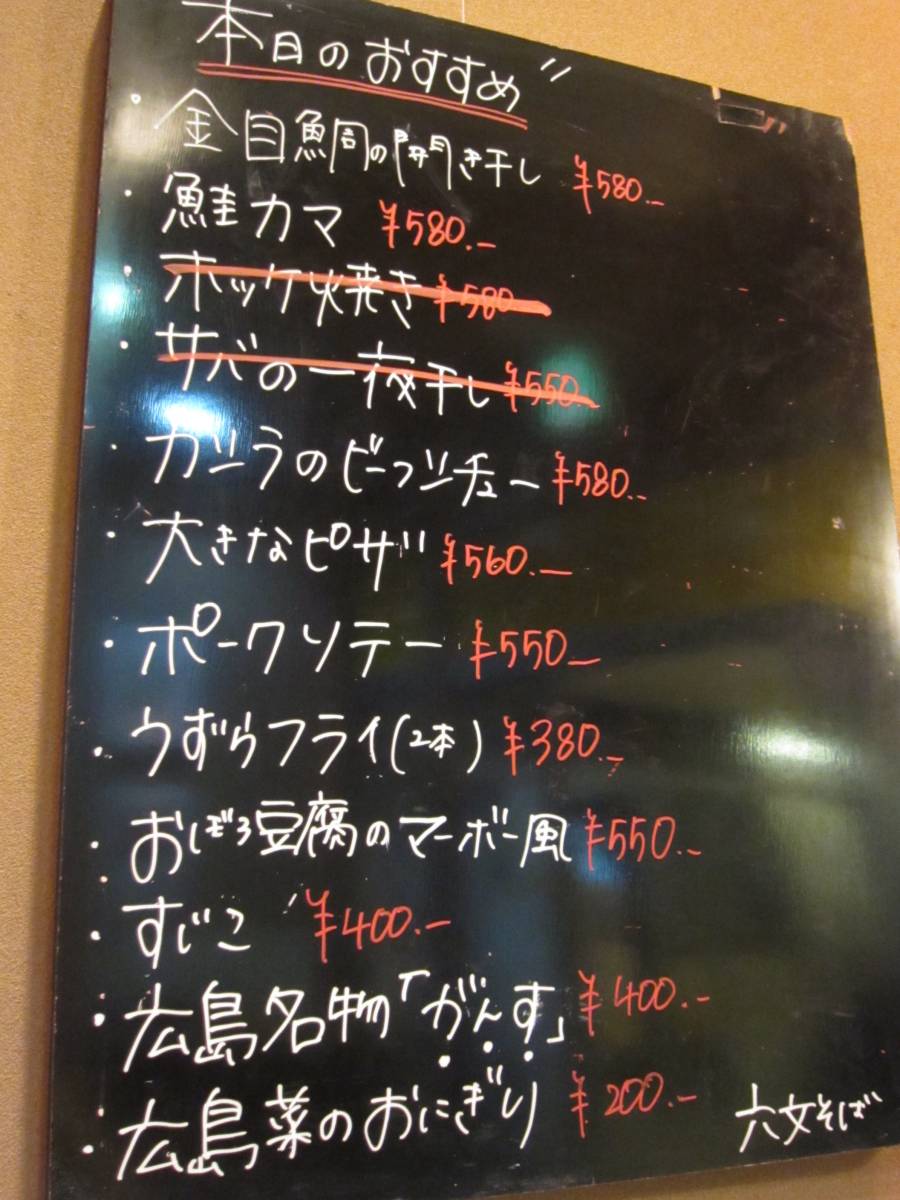 本日のおすすめ〃
・金目鯛の開き干し ¥580.-
・鮭カマ ¥580.-
・ホッケ火焼き ¥580
・サバの一夜干し ¥550.
・カツラのビーフシチュー ¥580.-
・大きなピザ ¥560.-
・ポークソテー ¥550-
・うずらフライ(2本) ¥380.-
・おぼろ豆腐のマーボー風 ¥550.-
・すじこ ¥400.-
・広島名物「がんす」 ¥400.-
・広島菜のおにぎり ¥200.-
六文そば